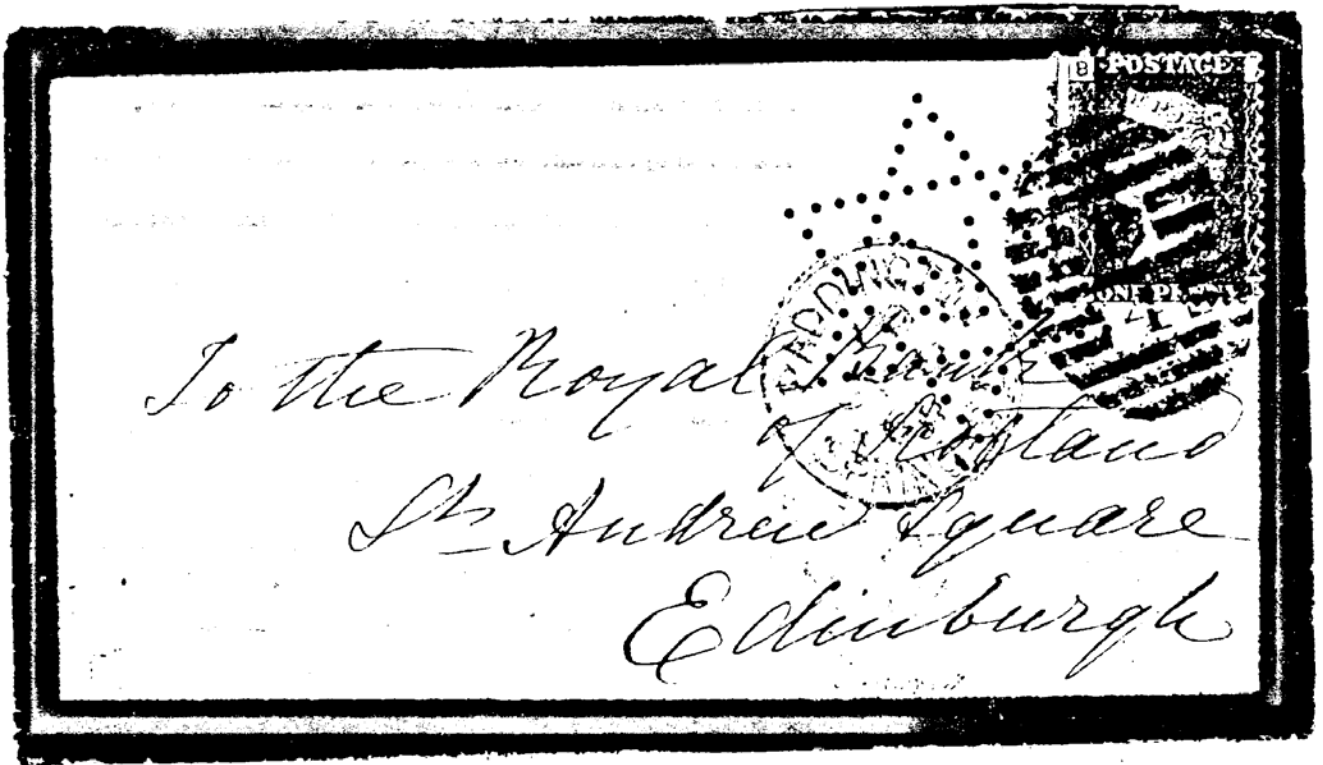 B POSTAGE B
ONE PENNY
To the Royal Bank
of Scotland
St Andrew Square
Edinburgh